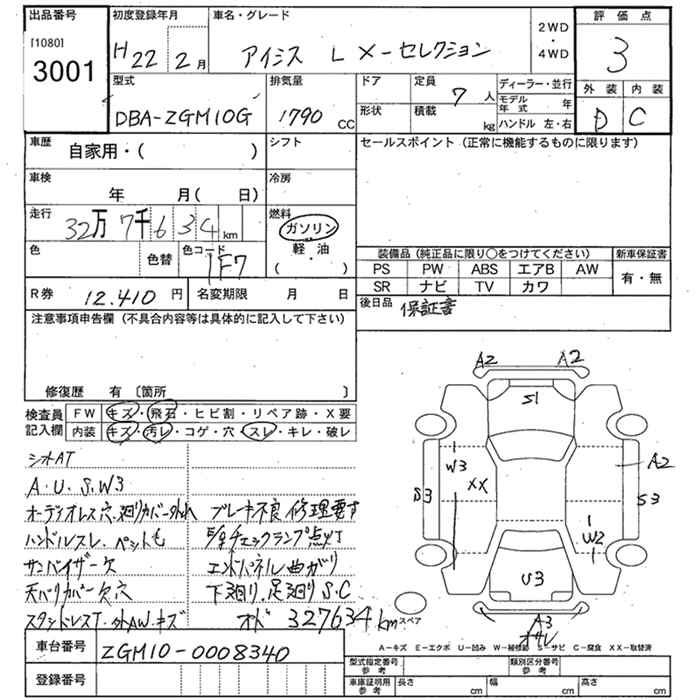 出品番号
[1080]
3001
初度登録年月
H22 2月
車名・グレード
アイシス L X-セレクション
2WD
・
4WD
評価点
3
外装 内装
D C
型式
DBA-ZGM10G
排気量
1790 CC
ドア
形状
定員
7人
積載
kg
ディーラー・並行
モデル年式 年
ハンドル 左・右
車歴
自家用・( )
シフト
セールスポイント(正常に機能するものに限ります)
車検
年 月( 日)
冷房
走行
32万7千634km
燃料
ガソリン
軽・油
( ・ )
色
色替
色コード
1F7
装備品(純正品に限り○をつけてください)
新車保証書
PS PW ABS エアB AW
SR ナビ TV カワ
有・無
R券 12.410 円
名変期限 月 日
後日品 保証書
注意事項申告欄(不具合内容等は具体的に記入して下さい)
修復歴 有〔箇所 〕
検査員記入欄
FW キズ・飛石・ヒビ割・リペア跡・X要
内装 キズ・汚レ・コゲ・穴・スレ・キレ・破レ
シオAT
A・U・S.W3
オーディオレス穴.廻りカバー外れ ブレーキ不良 修理要す
ハンドルスレ、ペットも
チェックランプ点灯
サンバイザー欠 エンドパネル曲がり
天バリカバー欠穴 下廻り.足廻りS.C
外AW.キズ オド 327634km
A2 A2
S1
W3 XX A2
S3 S3
W2
U3
A3
スペア
A-キズ E-エクボ U-凹み W-補修跡 S-サビ C-腐食 XX-取替済
車台番号
ZGM10-0008340
登録番号
型式指定番号
参考
類別区分番号
参考
車庫証明用
参考
長さ cm 幅 cm 高さ cm